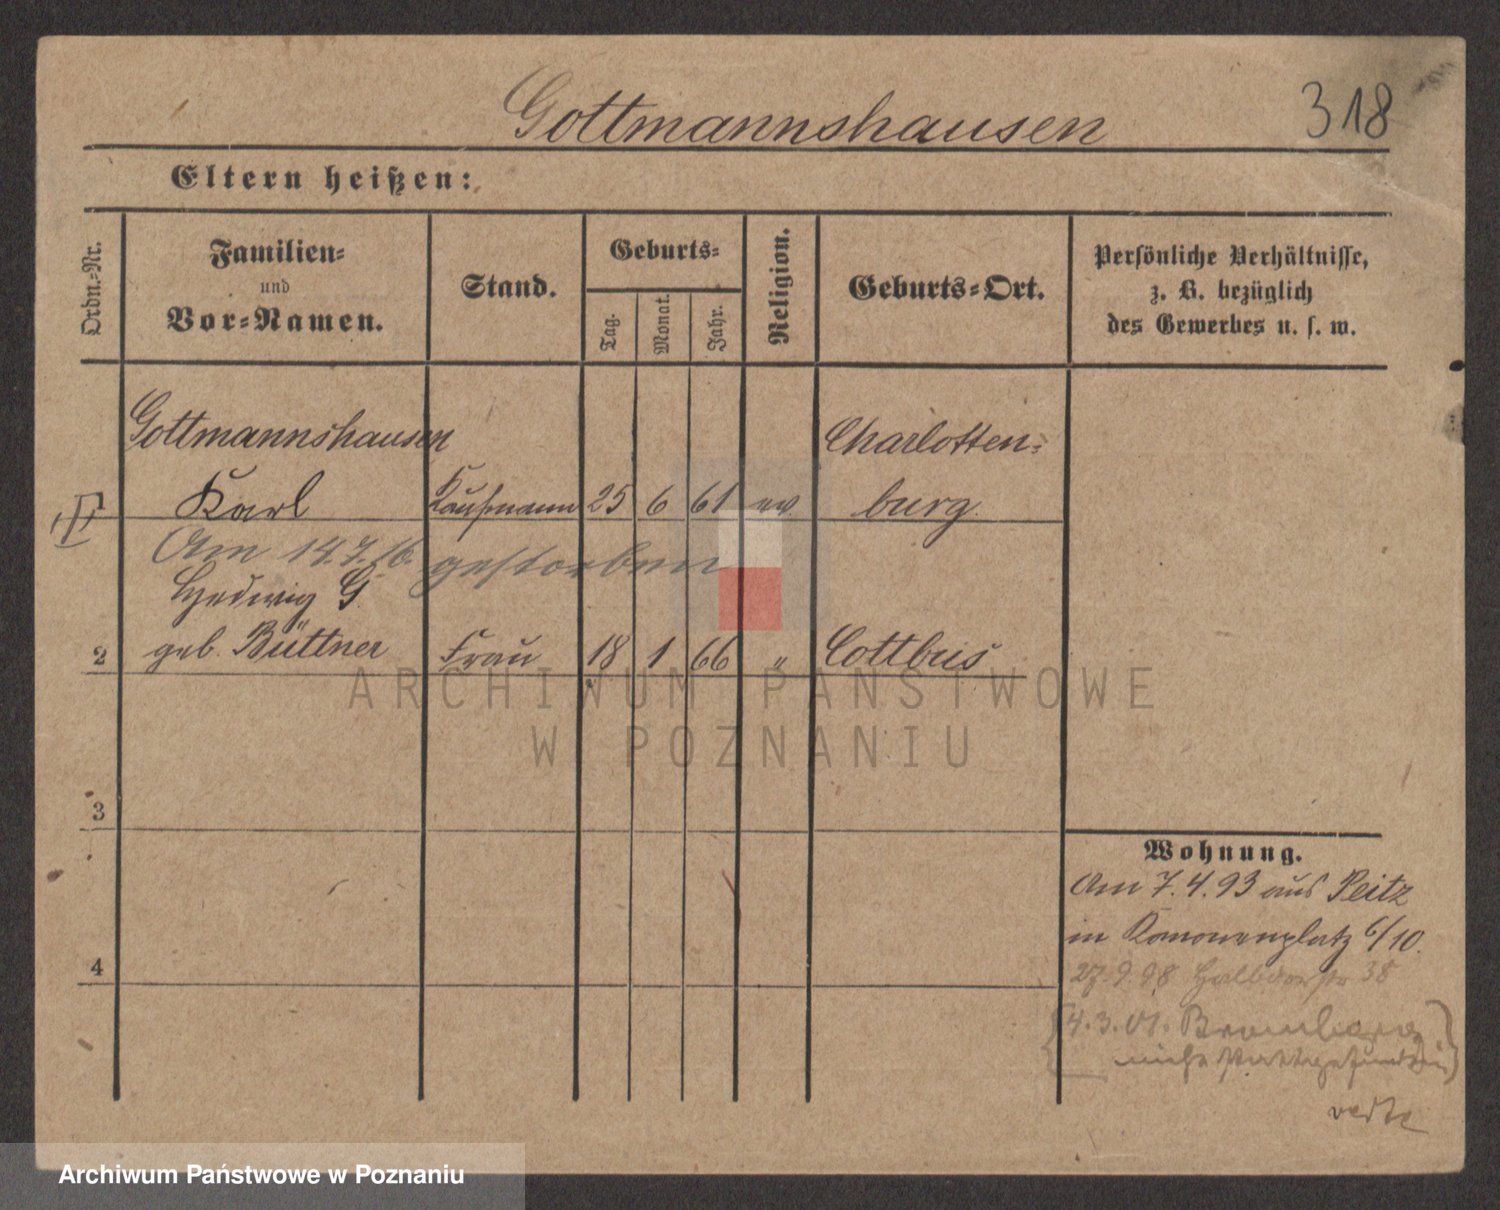 Gottmannshausen 318
Eltern heißen:
Ordn.-Nr.
Familien-
und
Vor-Namen.
Stand.
Geburts-
Tag. Monat. Jahr.
Religion.
Geburts-Ort.
Persönliche Verhältnisse,
z. B. bezüglich
des Gewerbes u. s. w.
Gottmannshausen Charlotten-
Karl Kaufmann 25 6 61 ev burg.
Am 14.7.16. gestorben
Hedwig G.
2 geb. Büttner Frau 18 1 66 " Cottbus
ARCHIWUM PAŃSTWOWE
W POZNANIU
3
Wohnung.
Am 7.4.93 aus Peitz
in Kanonenplatz 6/10.
4
27.9.98 Halbdorfstr 38
4.3.01. Bromberg
nicht stattgefunden
verte
Archiwum Państwowe w Poznaniu